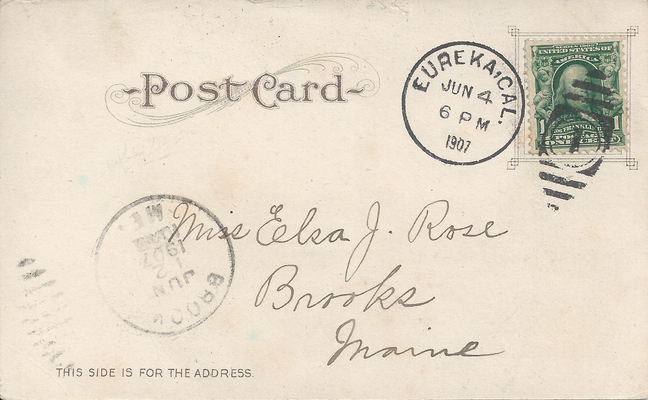 Post Card
EUREKA, CAL.
JUN 4
6 PM
1907
SERIES 1902
UNITED STATES OF
AMERICA
1 FRANKLIN 1
POSTAGE
ONE CENT
Miss Elsa J. Rose
Brooks
Maine
BROOK
ME.
JUN
1907
THIS SIDE IS FOR THE ADDRESS.